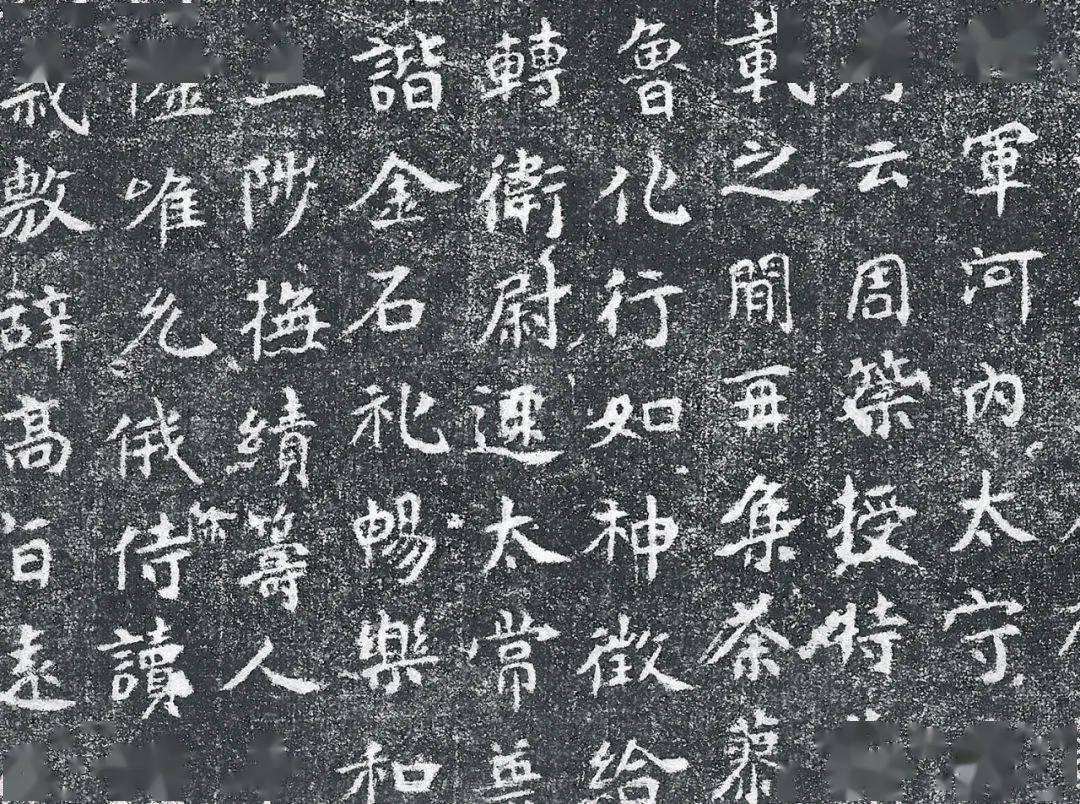 軍河內太守
云周築授時
載之間再集荼蓼
魯化行如神徵給
轉衛尉遷太常
諧金石礼暢樂和
陟撫績籌人
唯允俄侍讀
敷辞高旨遠